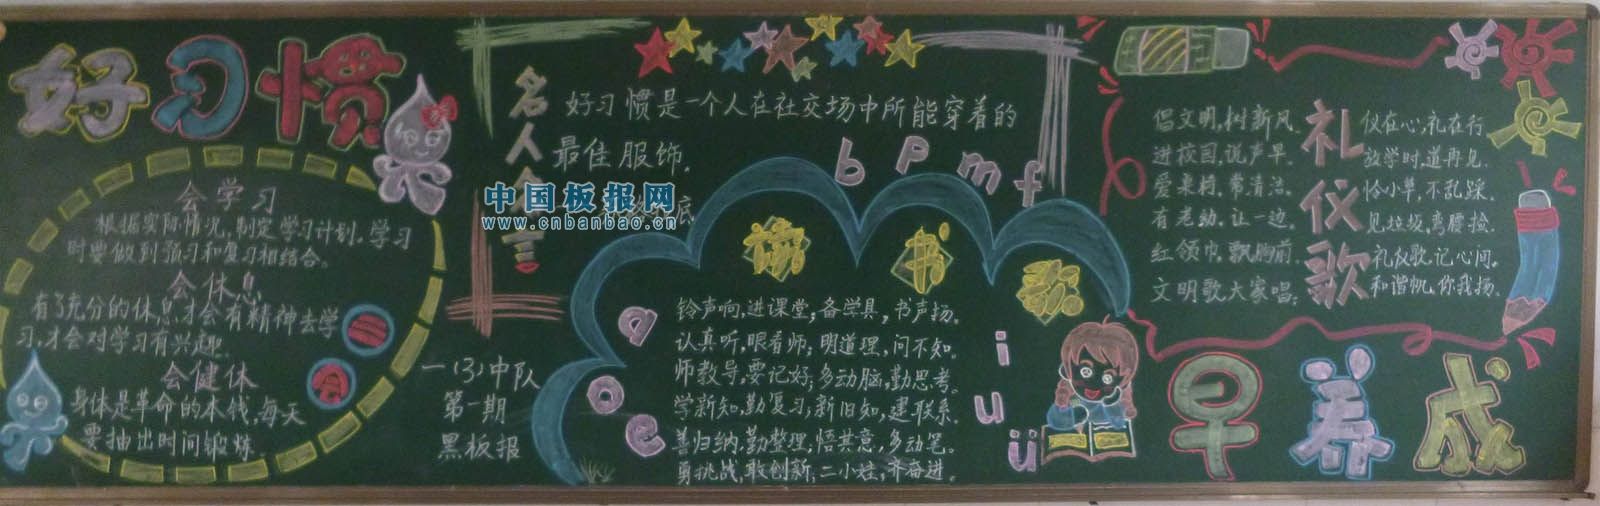 好习惯
会学习
根据实际情况，制定学习计划，学习
时要做到预习和复习相结合。
会休息
有了充分的休息，才会有精神去学
习，才会对学习有兴趣。
会健体
身体是革命的本钱，每天
要抽出时间锻炼。
名人名言
好习惯是一个人在社交场中所能穿着的
最佳服饰。
中国板报网
www.cnbanbao.cn
一(3)中队
第一期
黑板报
b p m f
a o e
i u ü
读书歌
铃声响，进课堂；备学具，书声扬。
认真听，眼看师；明道理，问不知。
师教导，要记好；多动脑，勤思考。
学新知，勤复习；新旧知，建联系。
善归纳，勤整理；悟其意，多动笔。
勇挑战，敢创新；二小娃，齐奋进。
礼仪歌
倡文明，树新风，
进校园，说声早。
爱桌椅，常清洁，
有老幼，让一边。
红领巾，飘胸前，
文明歌大家唱；
仪在心，礼在行
放学时，道再见。
怜小草，不乱踩，
见垃圾，弯腰捡。
礼仪歌，记心间，
和谐帆，你我扬。
早养成